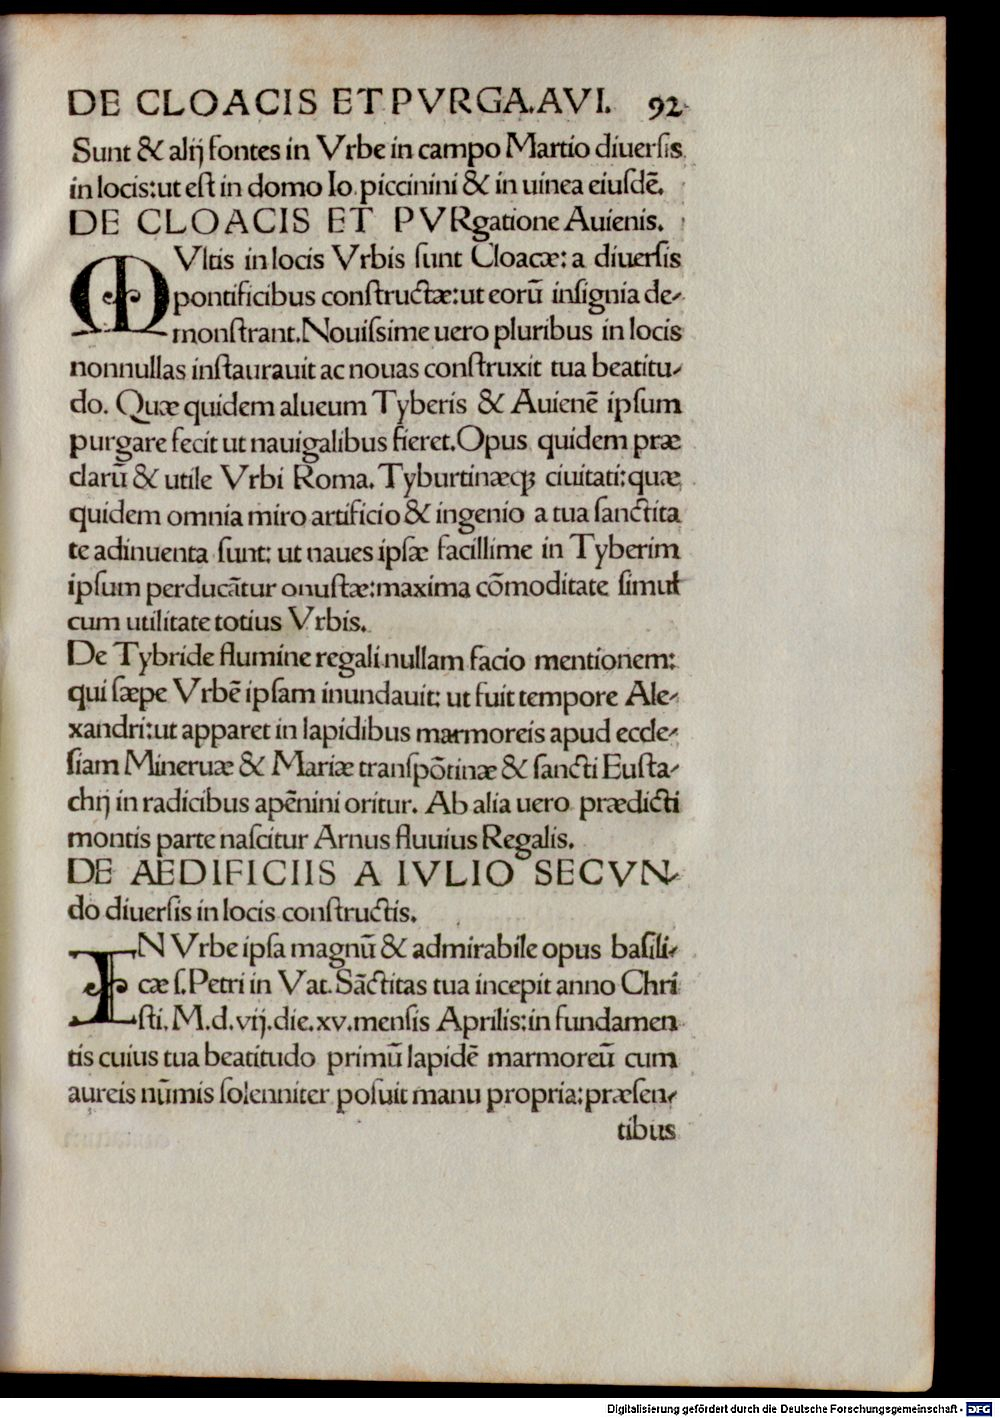 DE CLOACIS ET PVRGA.AVI. 92
Sunt & alij fontes in Vrbe in campo Martio diuerſis
in locis:ut eſt in domo Io.piccinini & in uinea eiuſdē.
DE CLOACIS ET PVRgatione Auienis.
MVltis in locis Vrbis ſunt Cloacæ: a diuerſis
pontificibus conſtructæ:ut eorū inſignia de-
monſtrant.Nouiſsime uero pluribus in locis
nonnullas inſtaurauit ac nouas conſtruxit tua beatitu-
do. Quæ quidem alueum Tyberis & Auienē ipſum
purgare fecit ut nauigalibus fieret.Opus quidem præ
clarū & utile Vrbi Roma. Tyburtinæqꝫ ciuitati:quæ
quidem omnia miro artificio & ingenio a tua ſanctita
te adinuenta ſunt: ut naues ipſæ facillime in Tyberim
ipſum perducātur onuſtæ:maxima cōmoditate ſimul
cum utilitate totius Vrbis.
De Tybride flumine regali nullam facio mentionem:
qui ſæpe Vrbē ipſam inundauit: ut fuit tempore Ale-
xandri:ut apparet in lapidibus marmoreis apud eccle-
ſiam Mineruæ & Mariæ tranſpōtinæ & ſancti Euſta-
chij in radicibus apēnini oritur. Ab alia uero prædicti
montis parte naſcitur Arnus fluuius Regalis.
DE AEDIFICIIS A IVLIO SECVN-
do diuerſis in locis conſtructis.
IN Vrbe ipſa magnū & admirabile opus baſili-
cæ ſ.Petri in Vat.Sāctitas tua incepit anno Chri
ſti.M.d.vij.die.xv.menſis Aprilis:in fundamen
tis cuius tua beatitudo primū lapidē marmoreū cum
aureis nūmis ſolenniter poſuit manu propria:præſen-
tibus
Digitalisierung gefördert durch die Deutsche Forschungsgemeinschaft - DFG